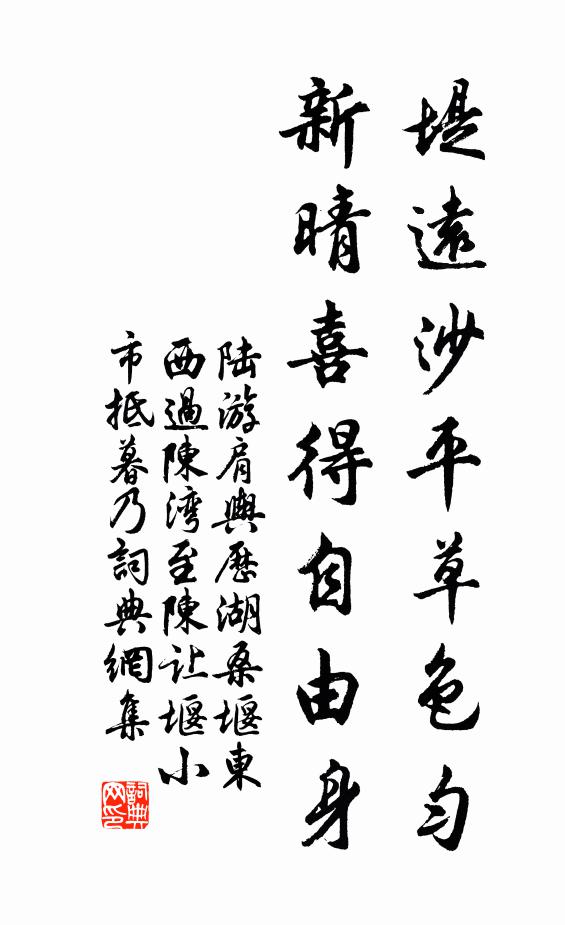 堤遠沙平草色勻
新晴喜得自由身
陆游肩輿歷湖桑堰東
西過陳湾至陳让堰小
市抵暮乃詞典網集
詞典
网印